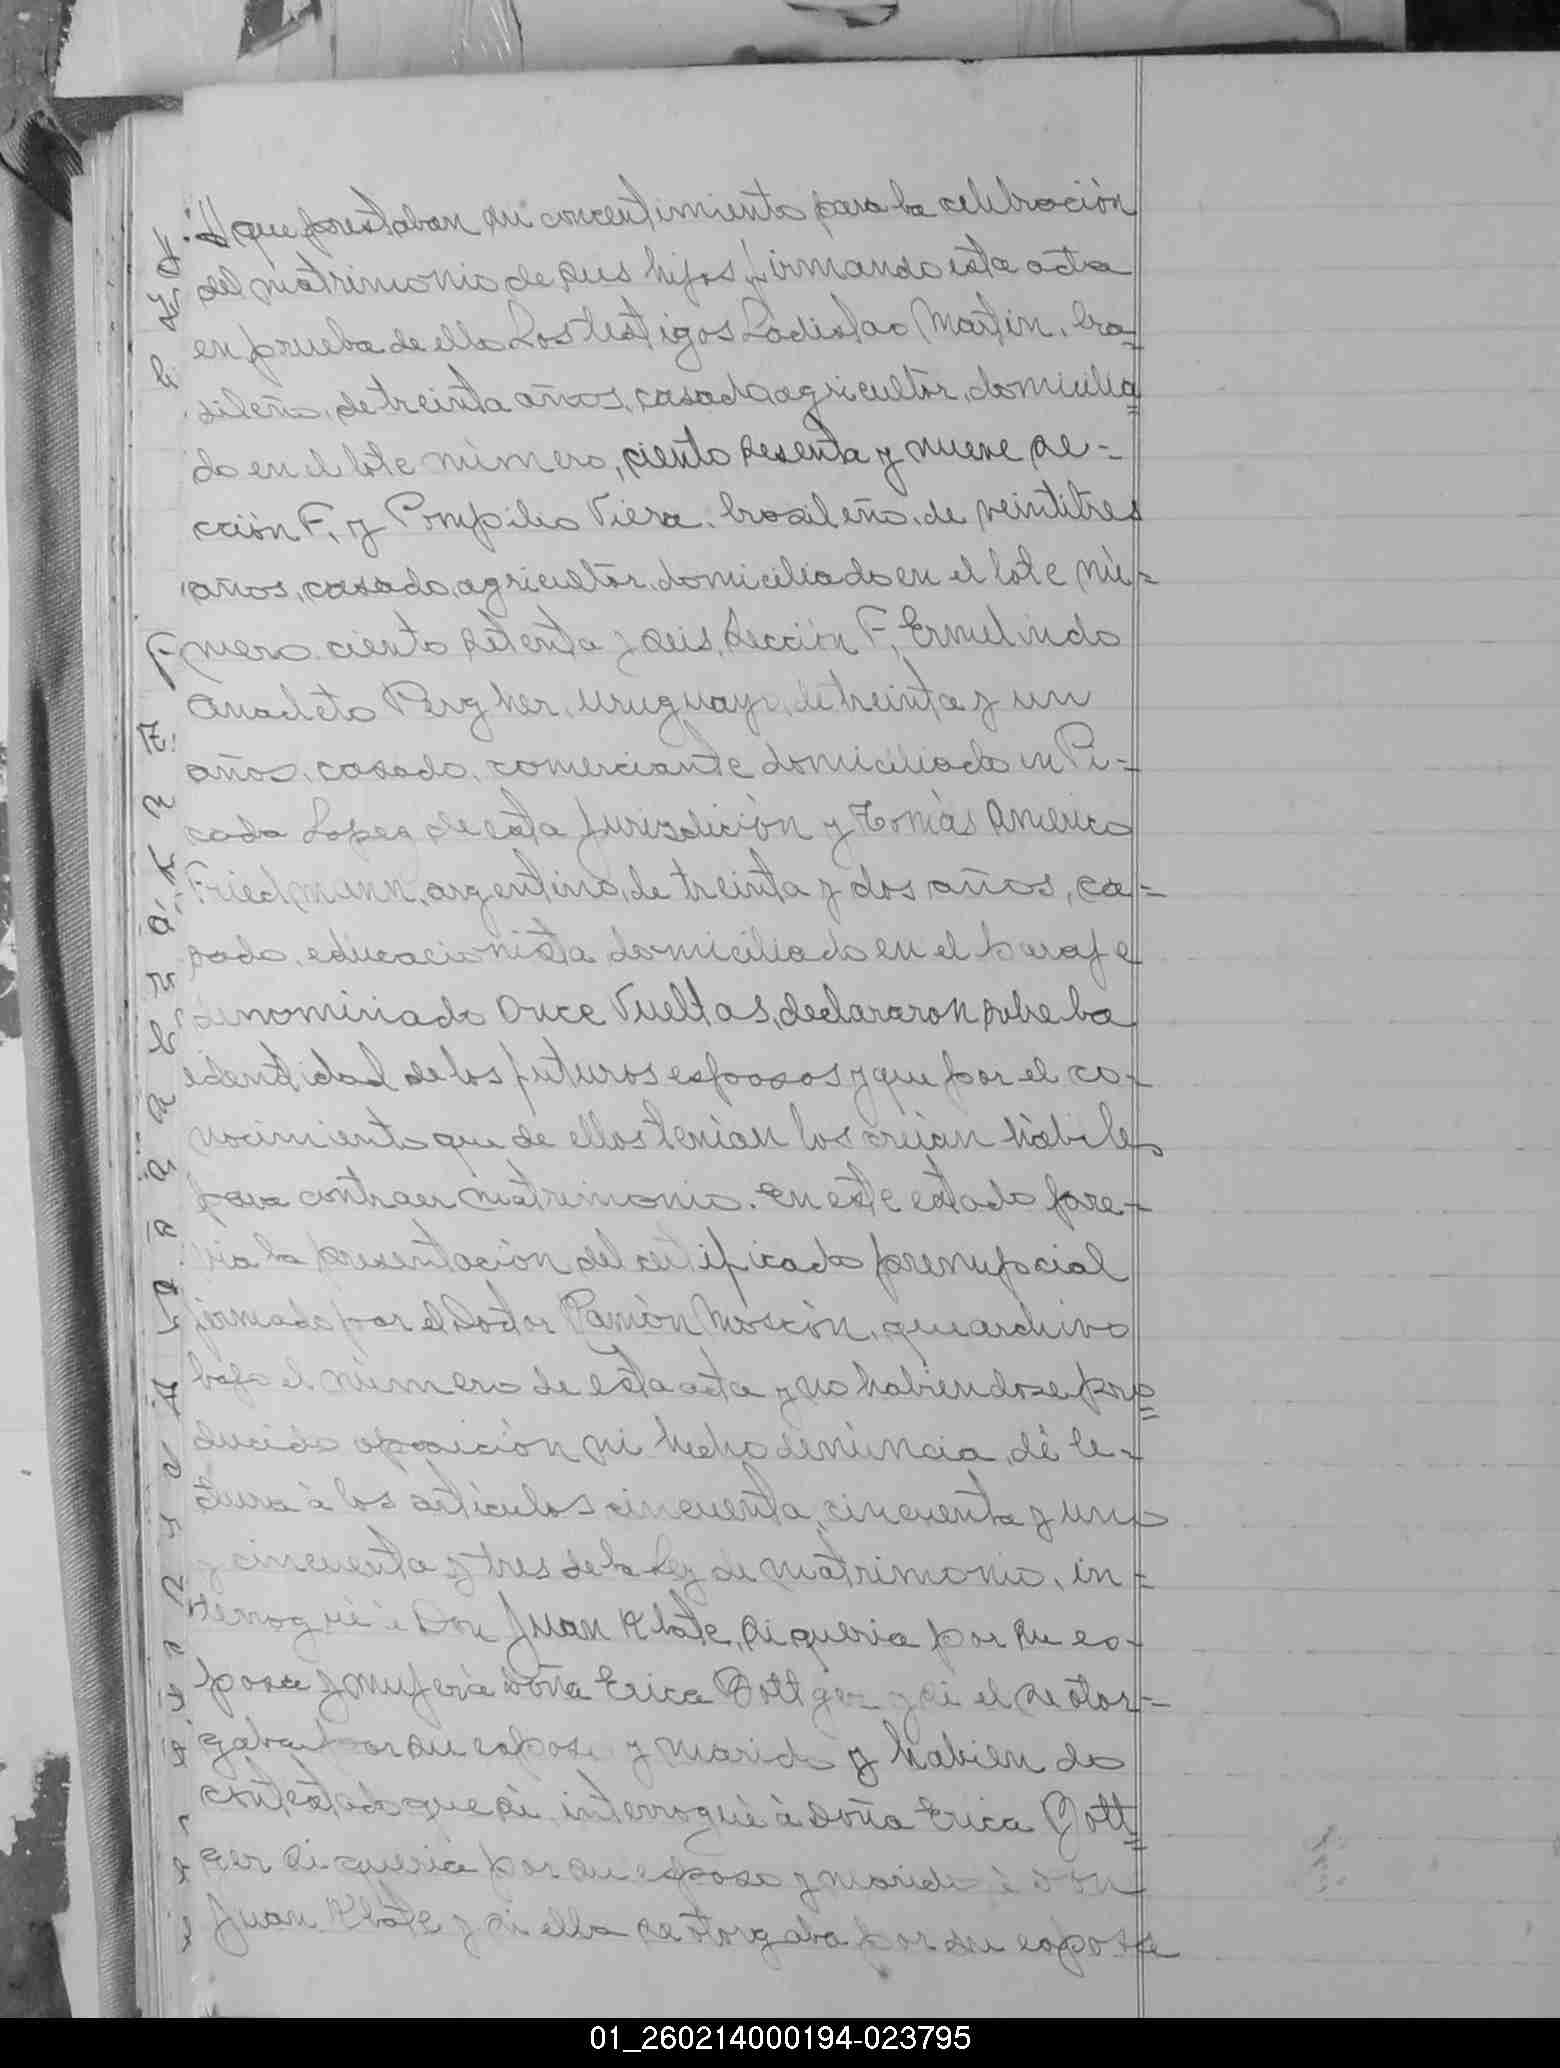 que prestaban su concentimiento para la celebración
del matrimonio de sus hijos, firmando esta acta
en prueba de ello. Los testigos Ladislao Martin, bra=
sileño, de treinta años, casado, agricultor, domicilia=
do en el lote número, ciento sesenta y nueve se=
cción F, y Pompilio Viera, brasileño, de veintitres
años, casado, agricultor, domiciliado en el lote nú=
mero ciento setenta y seis, sección F, Ermelindo
Anacleto Pergher, uruguayo, de treinta y un
años, casado, comerciante domiciliado en Pi=
cada Lopez de esta jurisdición y Tomás Americo
Friedmann, argentino, de treinta y dos años, ca=
sado, educacionista domiciliado en el paraje
denominado Once Vueltas, declararon sobre la
identidad de los futuros esposos y que por el co-
nocimiento que de ellos tenían los creían hábiles
para contraer matrimonio. En este estado pre-
via la presentación del certificado prenupcial
firmado por el Doctor Ramón Moscón, que archivo
bajo el número de esta acta y no habiendose pro=
ducido oposición ni hecho denúncia, dí le-
tura á los artículos cincuenta, cincuenta y uno
y cincuenta y tres de la Ley de matrimonio, in=
terrogué á Don Juan Klate, si queria por su es-
posa y mujer á doña Erica Gottger y si el se otor=
gaba por su esposo y marido y habiendo
contestado que si, interrogué á Doña Erica Gott=
ger si queria por su esposo y marido á don
Juan Klate y si ella se otorgaba por su esposa